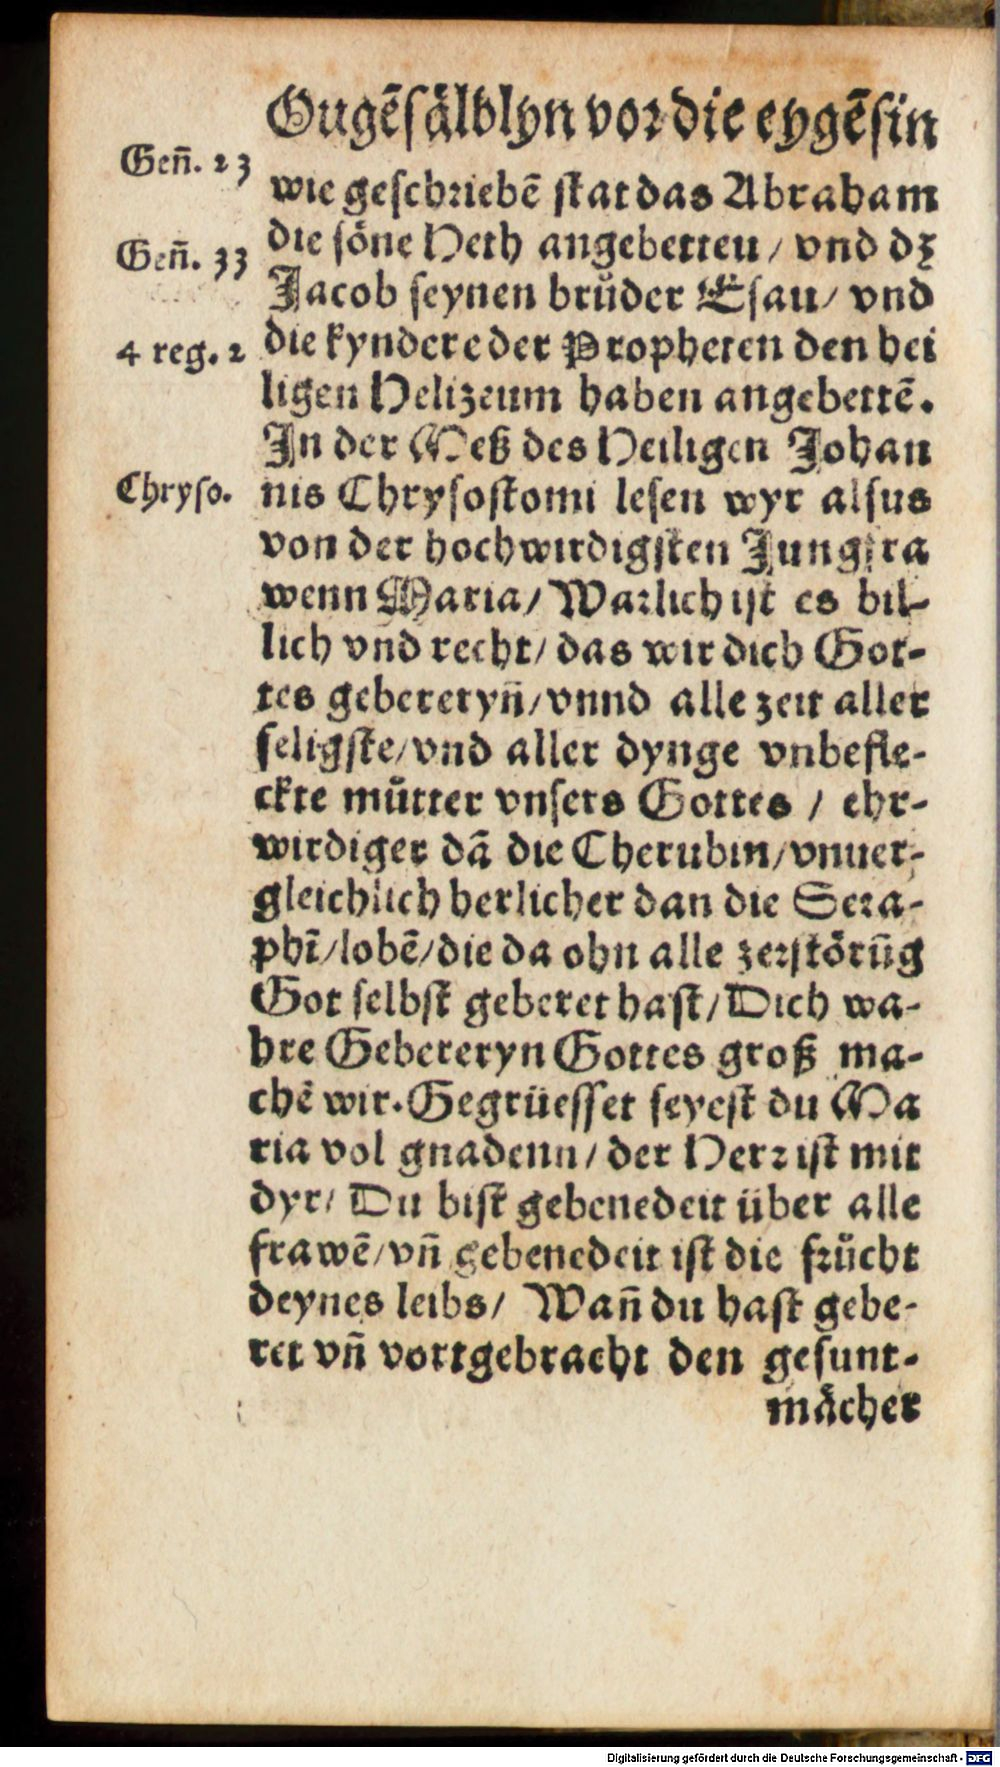 Ougē sälblyn vor die eygēsin
Geñ. 23
wie geschriebē stat das Abraham
die söne Heth angebetten / vnd dz
Geñ. 33
Jacob seynen brůder Esau / vnd
4 reg. 2
die kyndere der Propheten den hei
ligen Helizeum haben angebettē.
In der Meß des Heiligen Johan
Chryso.
nis Chrysostomi lesen wyr alsus
von der hochwirdigsten Jungfra
wenn Maria / Warlich ist es bil-
lich vnd recht / das wir dich Got-
tes gebereryñ / vnnd alle zeit aller
seligste / vnd aller dynge vnbefle-
ckte můtter vnsers Gottes / ehr-
wirdiger dā die Cherubin / vnuer-
gleichlich herlicher dan die Sera-
phī / lobē / die da ohn alle zerstörūg
Got selbst geberet hast / Dich wa-
hre Gebereryn Gottes groß ma-
chē wir. Gegrüesset seyest du Ma
ria vol gnadenn / der Herr ist mit
dyr / Du bist gebenedeit über alle
frawē / vñ gebenedeit ist die frůcht
deynes leibs / Wañ du hast gebe-
ret vñ vortgebracht den gesunt-
mächer
Digitalisierung gefördert durch die Deutsche Forschungsgemeinschaft - DFG